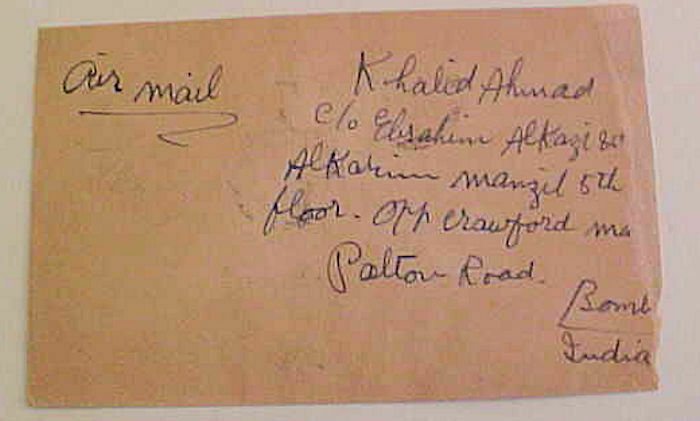 Air mail
Khalid Ahmad
c/o Ebrahim AlKazi
AlKarim manzil 5th
floor. Opp crawford ma
Palton Road.
Bomb
India